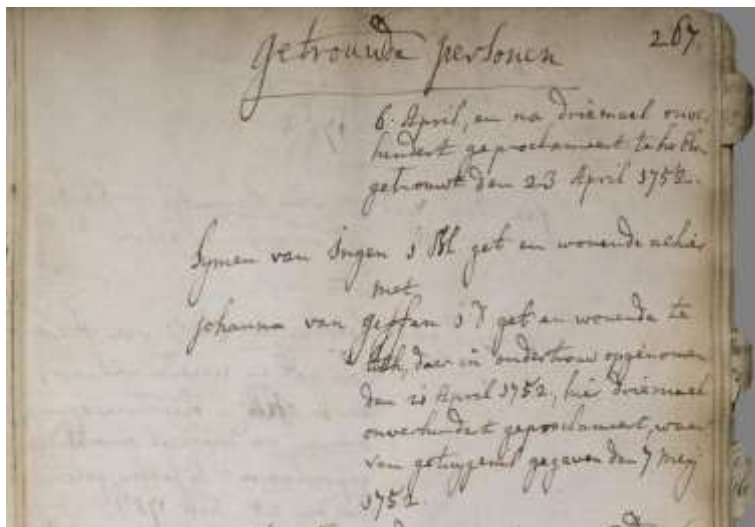 getrouwde personen 267.
6. April, en na driemael onve
hindert geproclameert te hebben
getrouwt den 23 April 1752.
Symen van Ingen j M get en wonende alhier
met
Johanna van Geffen j D get en wonende te
daer in ondertrouw opgenomen
den 21 April 1752, hie driemael
onverhindert geproclameert, waer
van getuygenis gegeven den 7 Meij
1752